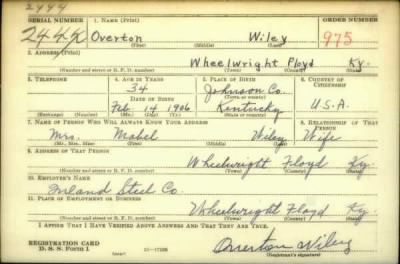 2444
SERIAL NUMBER 1. NAME (Print) ORDER NUMBER
2444 Overton Wiley 975
(First) (Middle) (Last)
2. ADDRESS (Print)
Wheelwright Floyd Ky.
(Number and street or R. F. D. number) (Town) (County) (State)
3. TELEPHONE 4. AGE IN YEARS 5. PLACE OF BIRTH 6. COUNTRY OF CITIZENSHIP
34 Johnson Co.
DATE OF BIRTH (Town or county)
Feb 14 1906 Kentucky U.S.A.
(Exchange) (Number) (Mo.) (Day) (Yr.) (State or country)
7. NAME OF PERSON WHO WILL ALWAYS KNOW YOUR ADDRESS 8. RELATIONSHIP OF THAT PERSON
Mrs. Mabel Wiley Wife
(Mr., Mrs., Miss) (First) (Middle) (Last)
9. ADDRESS OF THAT PERSON
Wheelwright Floyd Ky.
(Number and street or R. F. D. number) (Town) (County) (State)
10. EMPLOYER'S NAME
Inland Steel Co.
11. PLACE OF EMPLOYMENT OR BUSINESS
Wheelwright Floyd Ky.
(Number and street or R. F. D. number) (Town) (County) (State)
I AFFIRM THAT I HAVE VERIFIED ABOVE ANSWERS AND THAT THEY ARE TRUE.
REGISTRATION CARD
D. S. S. Form 1 Overton Wiley
(Registrant's signature)